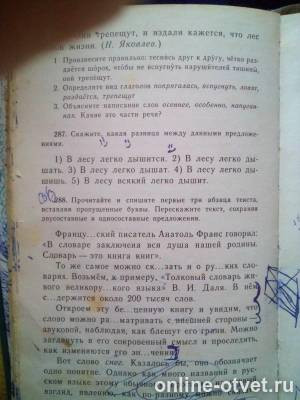 трепещут, и издали кажется, что лес
жизни. (Н. Яковлев.)
1 Произнесите правильно: теснясь друг к другу, чётко раз-
даётся шорох, чтобы не вспугнуть нарушителей тишины,
ной трепещут.
2 Определите вид глаголов
вспугнуть, ловят,
раздаётся, трепещут
3 Объясните написание слов осеннее, особенно, напуган-
ная. Какие это части речи?
287. Скажите, какая разница между данными предложе-
ниями.
1) В лесу легко дышится. 2) В лесу легко ды-
шать. 3) В лесу легко дышат. 4) В лесу легко ды-
шишь. 5) В лесу всякий легко дышит.
288. Прочитайте и спишите первые три абзаца текста,
вставляя пропущенные буквы. Перескажите текст, сохраняя
двусоставные и односоставные предложения.
Францу...ский писатель Анатоль Франс говорил:
«В словаре заключена вся душа нашей родины.
Словарь — это книга книг».
То же самое можно ск...зать и о ру...ких сло-
варях. Возьмём, к примеру, «Толковый словарь жи-
вого великору...кого языка» В. И. Даля. В нём
с...держится около 200 тысяч слов.
Откроем эту бе...ценную книгу и увидим, что
слово можно ра...матривать с внешней стороны —
звуковой, наблюдая, как блещут его грани. Можно
заглянуть в его сокровенный смысл и проследить,
как изменяются его зн...чения.
Вот слово снег. Казалось бы, оно обозначает
одно понятие. Однако как много названий в рус-
ском языке этому обычному
взгляд, явлению, как по-разному можно
online-otvet.ru